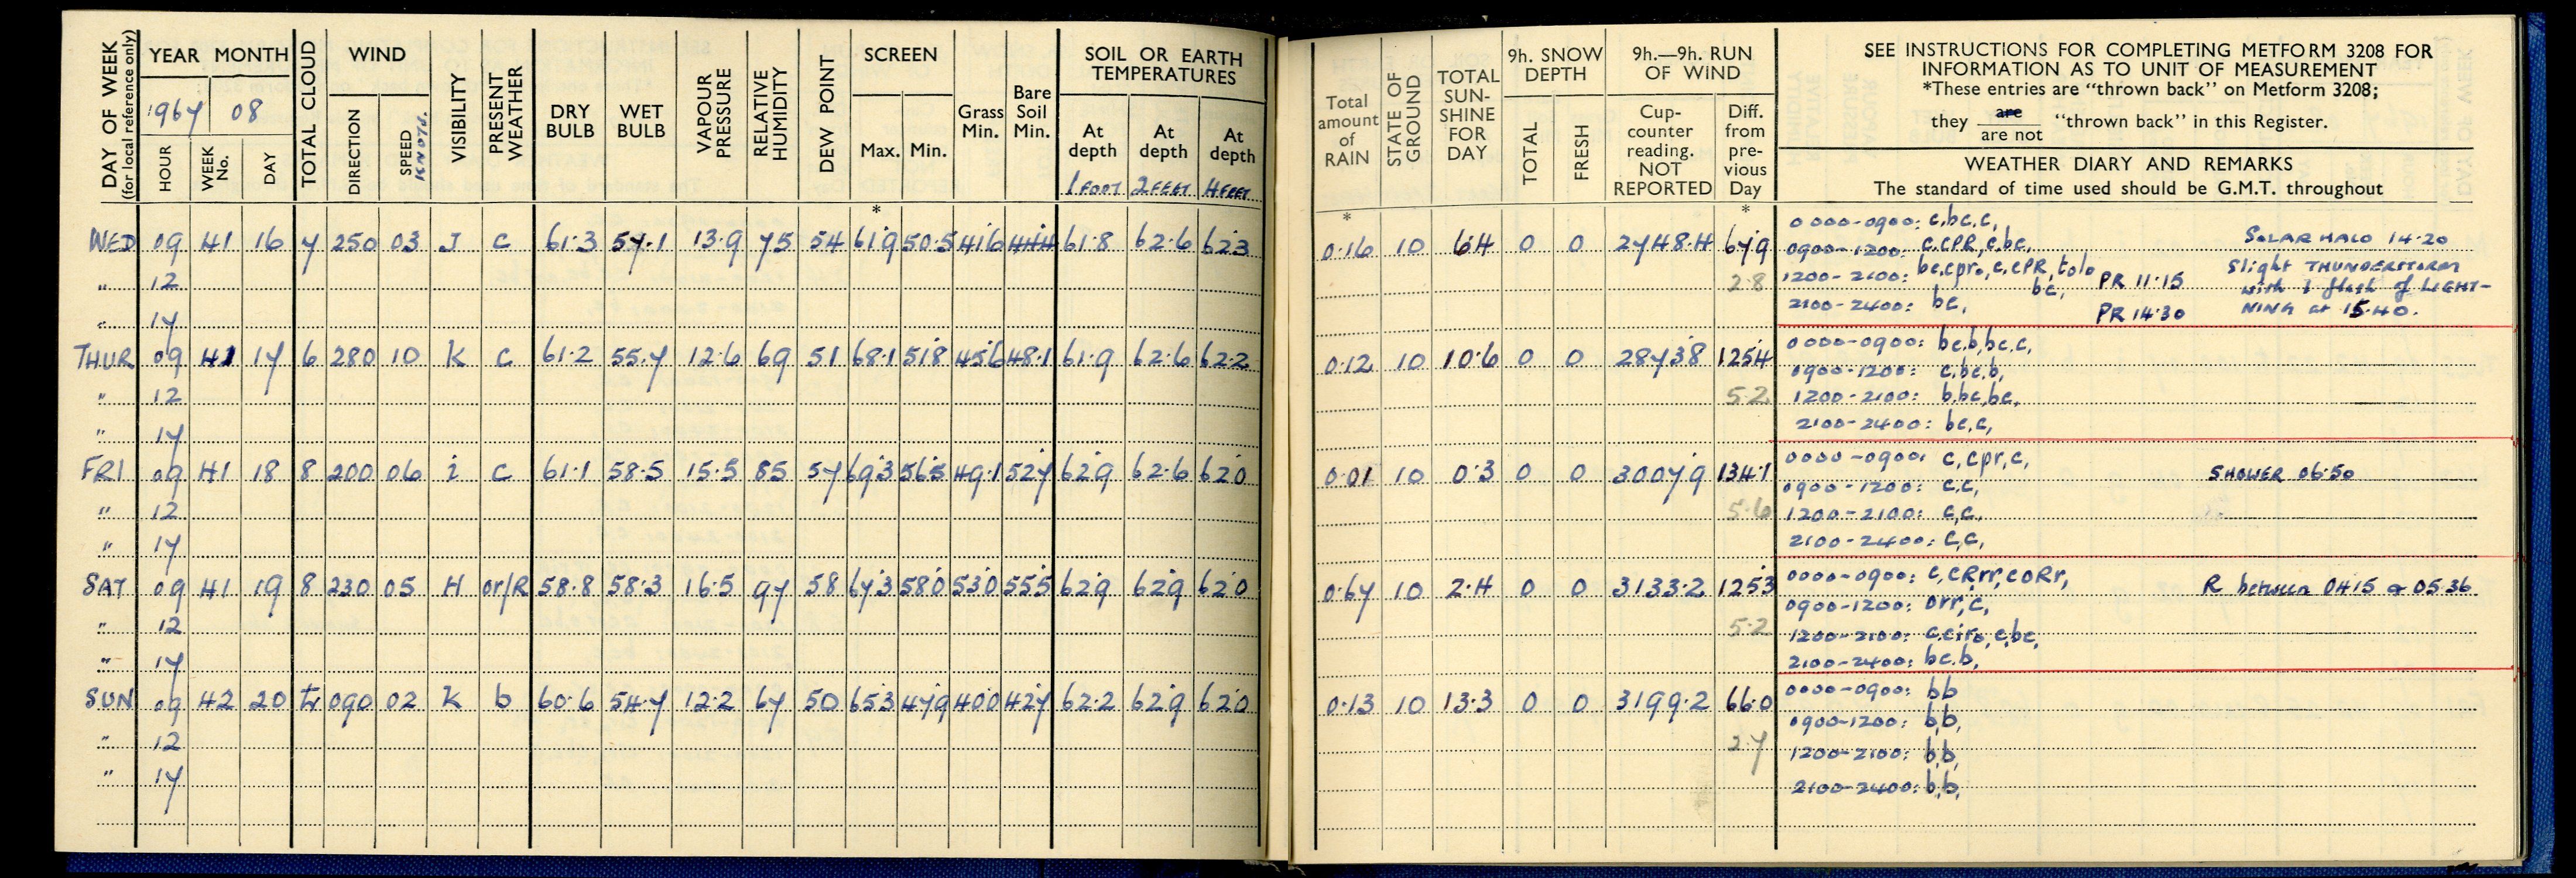 DAY OF WEEK
(for local reference only)
YEAR MONTH
1967 08
HOUR
WEEK No.
DAY
TOTAL CLOUD
WIND
DIRECTION
SPEED KNOTS.
VISIBILITY
PRESENT WEATHER
DRY BULB
WET BULB
VAPOUR PRESSURE
RELATIVE HUMIDITY
DEW POINT
SCREEN
Max. Min.
*
Grass Min.
Bare Soil Min.
SOIL OR EARTH TEMPERATURES
At depth 1 FOOT
At depth 2 FEET
At depth 4 FEET
WED 09 41 16 7 250 03 J c 61.3 57.1 13.9 75 54 61.9 50.5 41.6 44.4 61.8 62.6 62.3
" 12
" 17
THUR 09 41 17 6 280 10 K c 61.2 55.7 12.6 69 51 68.1 51.8 45.6 48.1 61.9 62.6 62.2
" 12
" 17
FRI 09 41 18 8 200 06 i c 61.1 58.5 15.5 85 57 69.3 56.5 49.1 52.7 62.9 62.6 62.0
" 12
" 17
SAT 09 41 19 8 230 05 H or/R 58.8 58.3 16.5 97 58 67.3 58.0 53.0 55.5 62.9 62.9 62.0
" 12
" 17
SUN 09 42 20 tr 090 02 K b 60.6 54.7 12.2 67 50 65.3 47.9 40.0 42.7 62.2 62.9 62.0
" 12
" 17
Total amount of RAIN
*
STATE OF GROUND
TOTAL SUN-SHINE FOR DAY
9h. SNOW DEPTH
TOTAL
FRESH
9h.—9h. RUN OF WIND
Cup-counter reading. NOT REPORTED
Diff. from pre-vious Day
*
SEE INSTRUCTIONS FOR COMPLETING METFORM 3208 FOR
INFORMATION AS TO UNIT OF MEASUREMENT
*These entries are "thrown back" on Metform 3208;
they are / are not "thrown back" in this Register.
WEATHER DIARY AND REMARKS
The standard of time used should be G.M.T. throughout
0.16 10 6.4 0 0 2748.4 67.9
2.8
0000-0900: c,bc,c,
0900-1200: c,cPR,c,bc, SOLAR HALO 14.20
1200-2100: bc,cpro,c,cPR,tolo bc, PR 11.15 Slight THUNDERSTORM
with 1 flash of LIGHT-
2100-2400: bc, PR 14.30 NING at 15.40.
0.12 10 10.6 0 0 2873.8 125.4
5.2
0000-0900: bc,b,bc,c,
0900-1200: c,bc,b,
1200-2100: b,bc,bc,
2100-2400: bc,c,
0.01 10 0.3 0 0 3007.9 134.1
5.6
0000-0900: c,cpr,c, SHOWER 06.50
0900-1200: c,c,
1200-2100: c,c,
2100-2400: c,c,
0.67 10 2.4 0 0 3133.2 125.3
5.2
0000-0900: c,cRrr,coRr, R between 0415 & 05.36
0900-1200: orr,c,
1200-2100: c,ciro,c,bc,
2100-2400: bc,b,
0.13 10 13.3 0 0 3199.2 66.0
2.7
0000-0900: bb
0900-1200: b,b,
1200-2100: b,b,
2100-2400: b,b,